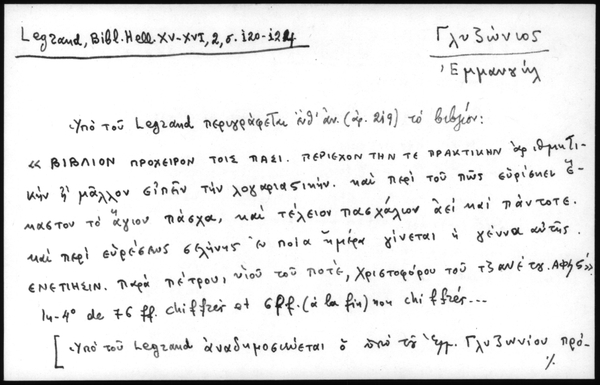 Legrand, Bibl. Hell. XV-XVI, 2, σ. 120-124
Γλυζώνιος
Ἐμμανουήλ
Ὑπὸ τοῦ Legrand περιγράφεται ἐνθ' ἀν. (ἀρ. 219) τὸ βιβλίον:
« ΒΙΒΛΙΟΝ ΠΡΟΧΕΙΡΟΝ ΤΟΙΣ ΠΑΣΙ. ΠΕΡΙΕΧΟΝ ΤΗΝ ΤΕ ΠΡΑΚΤΙΚΗΝ ἀριθμητι-
κὴν ἢ μᾶλλον εἰπεῖν τὴν λογαριαστικήν. καὶ περὶ τοῦ πῶς εὑρίσκει ἕ-
καστον τὸ ἅγιον πάσχα, καὶ τέλειον πασχάλιον ἀεὶ καὶ πάντοτε.
καὶ περὶ εὑρέσεως σελήνης ἐν ποία ἡμέρα γίνεται ἡ γέννα αὐτῆς.
ΕΝΕΤΙΗΣΙΝ. Παρὰ πέτρου, υἱοῦ τοῦ ποτὲ, Χριστοφόρου τοῦ τζανέτου. ΑΦϟς´»
In-4° de 76 ff. chiffrés et 6 ff. (à la fin) non chiffrés...
[ Ὑπὸ τοῦ Legrand ἀναδημοσιεύεται ὁ ὑπὸ τοῦ Ἐμμ. Γλυζωνίου πρό-
./.